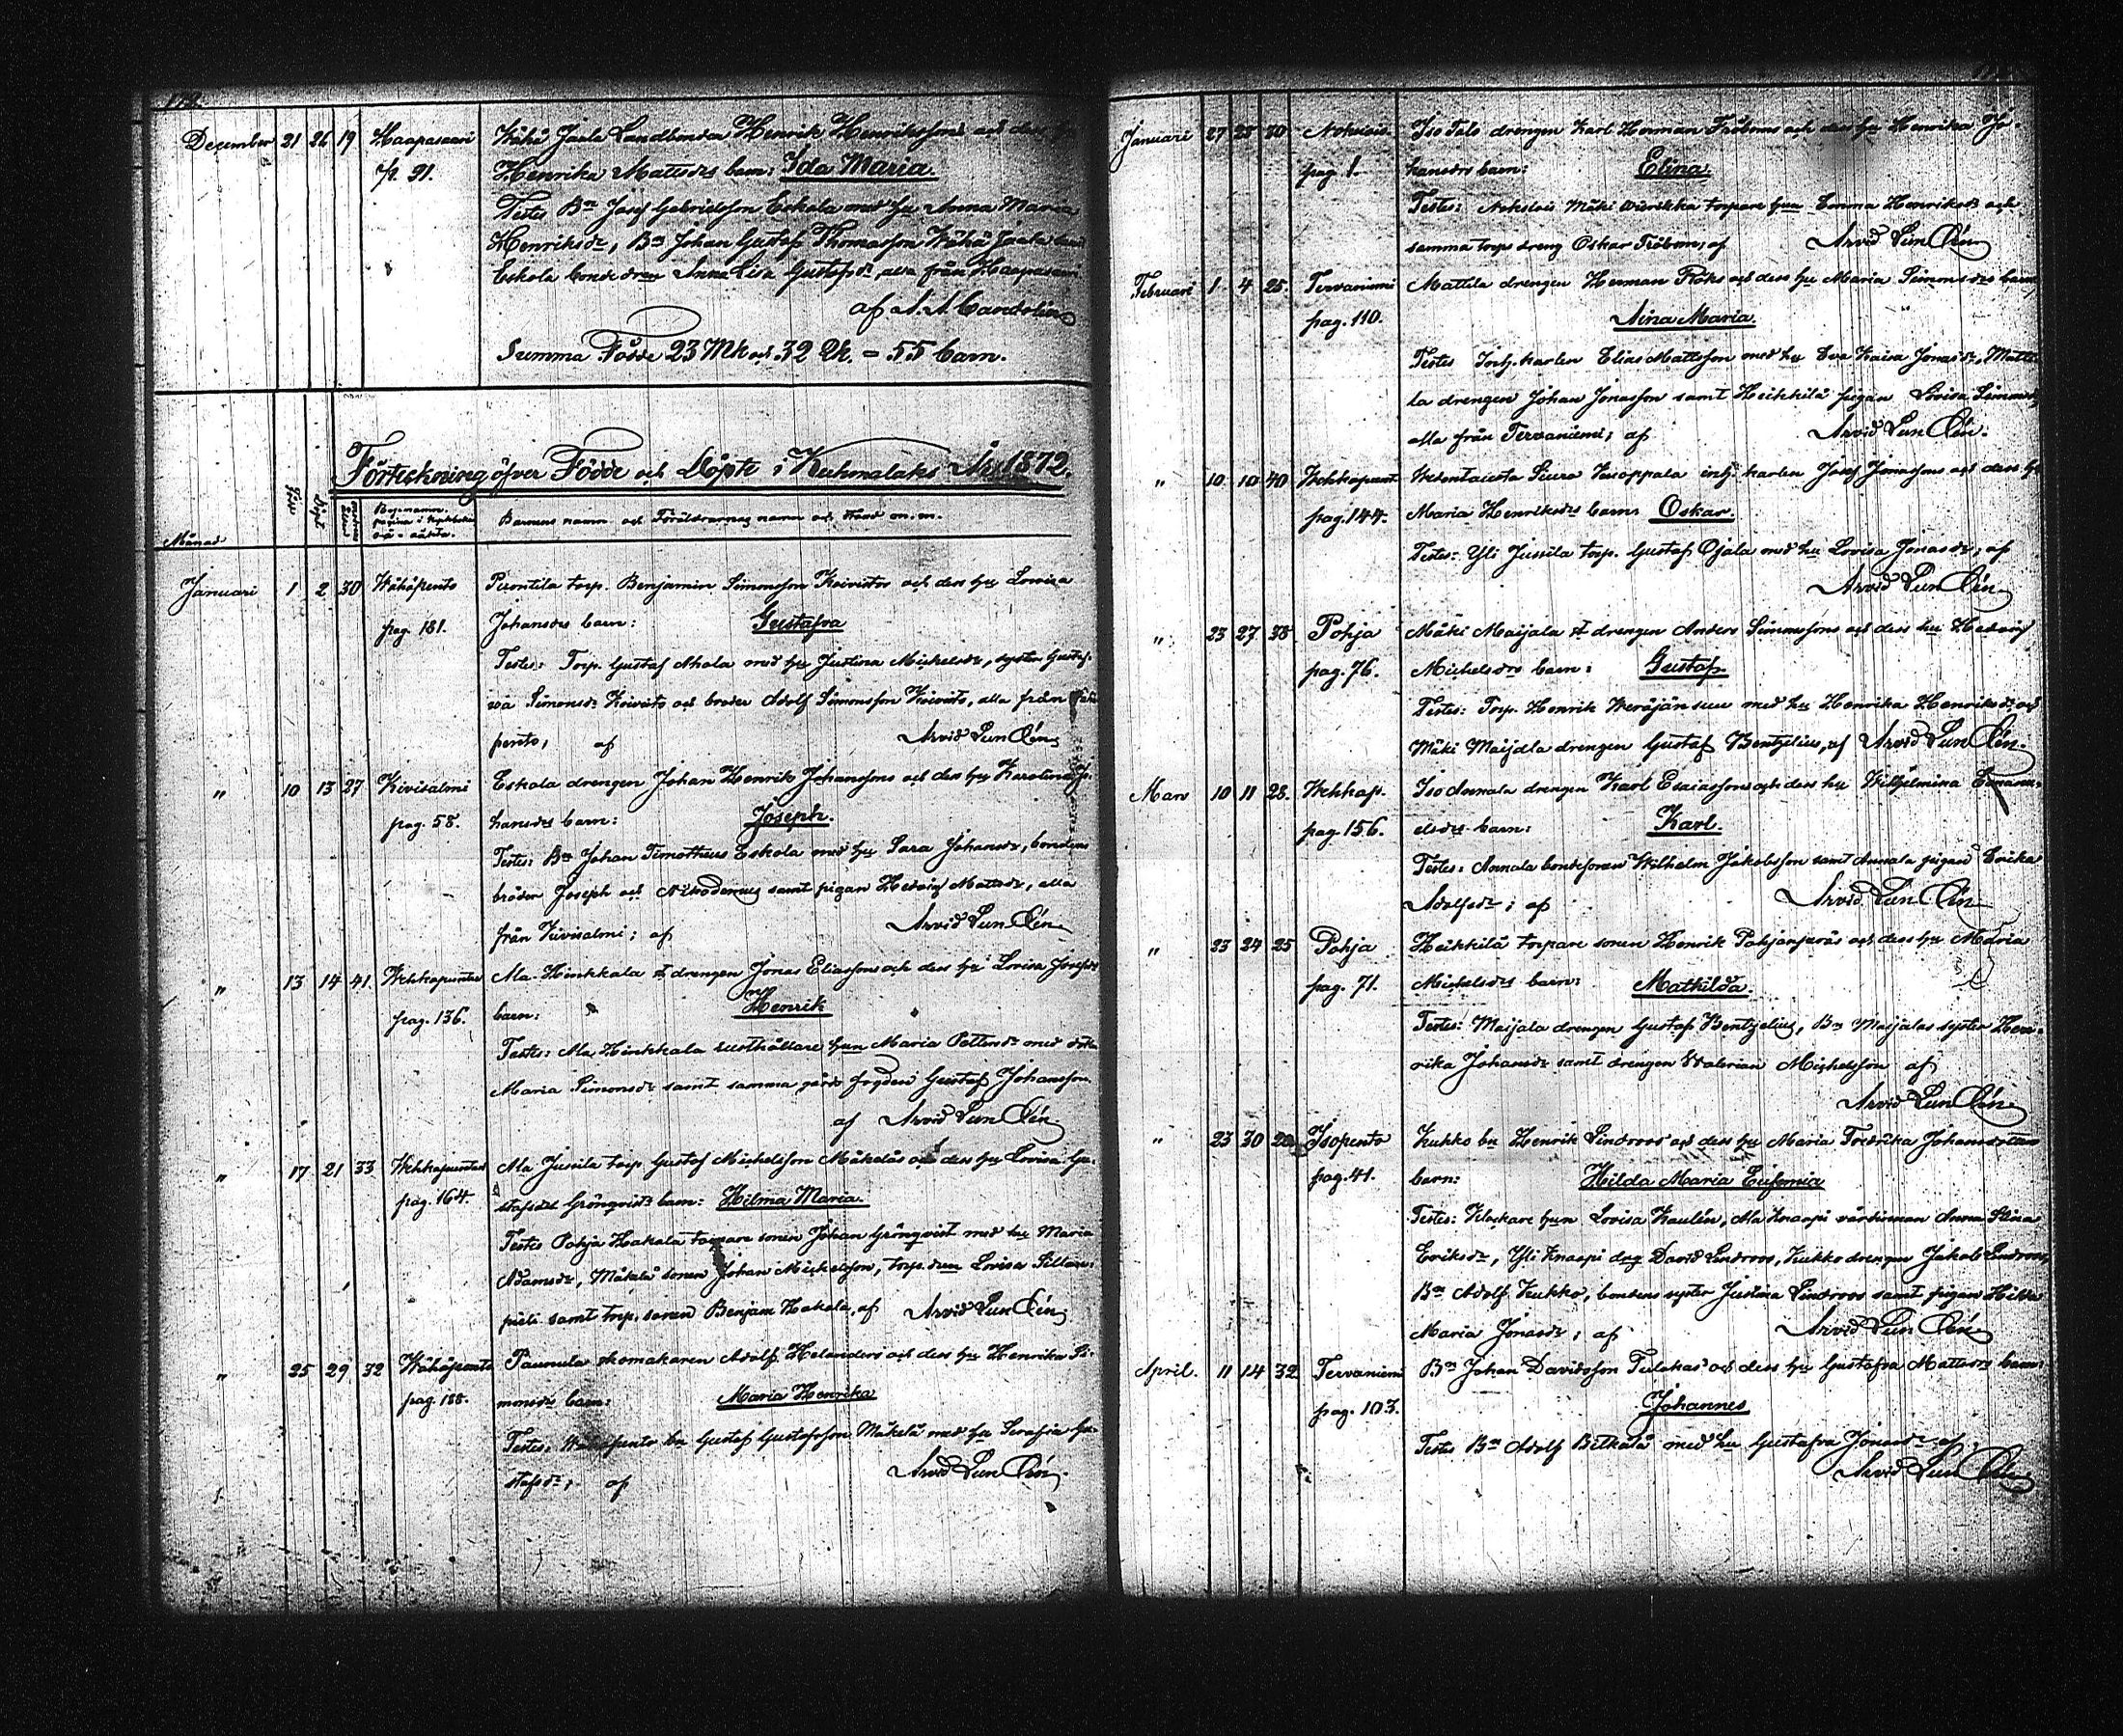 172.
December 21 26 19 Haapasaari Wähä Jaala Landbonden Henrik Henrikssons och dess
p. 91. Henrika Mattsdrs barn: Ida Maria.
Testes Bn Josef Gabrielsson Eskola med hu Anna Maria
Henriksdr, Bn Johan Gustaf Thomasson Wähä Jaala
Eskola bonde Anna Lisa Gustafsdr, alla från Haapasaari
af
Summa Födde 23 Mk och 32 Qk. = 55 barn.
Förteckning öfver Födde och Döpte i Kuhmalaks År 1872.
Månad
Född
Döpt
Barnens namn och Föräldrarnas namn och stånd m.m.
Januari 1 2 30 Wähäpento torp. Benjamin Simonsson Koivistos och dess hu Lovisa
pag. 181. Johansdrs barn: Gustafva
Testes: Torp. Gustaf Ahola med hu Justina Michelsdr, syster Gustaf-
va Simonsdr Koivisto och broder Adolf Simonsson Koivisto, alla från
pento, af Arvid Lundén
" 10 13 27 Kivisalmi Eskola drengen Johan Henrik Johanssons och dess hu Karolina Jo-
pag. 58. hansdrs barn: Joseph.
Testes: Bn Johan Timotheus Eskola med hu Sara Johansdr, bondens
bröder Joseph och Nikodemus samt pigan Hedvig Mattsdr, alla
från Kivisalmi; af Arvid Lundén
" 13 14 41 Wehkapuntari Ala-Hinkkala drengen Jonas Eliassons och dess hu Lovisa Josefsdrs
pag. 136. barn: Henrik
Testes: Ala Hinkkala rusthållare hun Maria med
Maria Simonsdr samt samma gårds fogden Gustaf Johansson
af Arvid Lundén
" 17 21 33 Wehkapuntari Ala Jussila torp. Gustaf Michelsson Mäkeläs och dess hu Lovisa Gu-
pag. 164. stafsdr Grönqvists barn: Hilma Maria.
Testes Pohja Hakala torpare sonen Johan Grönqvist med hu Maria
Adamsdr, Mäkelä sonen Johan Michelsson, torp. Lovisa Sillan-
pieli samt torp. sonen Benjam Hakala, af Arvid Lundén
" 25 29 32 Wähäpento Paunula skomakaren Adolf Helanders och dess hu Henrika Si-
pag. 188. monsdrs barn: Maria Henrika
Testes: Wähäpento bn Gustaf Gustafsson Mäkelä med hu Serafia Gu-
stafsdr; af Arvid Lundén.
Januari 27 28 30 Iso Talo drengen Karl Herman Fröboms och dess hu Henrika Jo-
pag. 1. hansdrs barn: Elina
Testes: Mäki torpare hun Emma Henriksdr och
samma torp dreng Oskar Fröbom; af Arvid Lundén
Februari 1 4 25. Tervaniemi Mattila drengen Herman och dess hu Maria Simonsdrs barn,
pag. 110. Aina Maria.
Testes Inh. karlen Elias Mattsson med hu Eva Kaisa Jonasdr, Matti-
la drengen Johan Jonasson samt Heikkilä pigan Lovisa Simonsdr
alla från Tervaniemi; af Arvid Lundén.
" 10 10 40 inh. karlen Josef Jonassons och dess hu
pag. 144. Maria Henriksdrs barn: Oskar.
Testes: Yli Jussila torp. Gustaf Ojala med hu Lovisa Jonasdr; af
Arvid Lundén
" 23 27 38 Pohja Mäki Maijala drengen Anders Simonssons och dess hu Hedvig
pag. 76. Michelsdrs barn: Gustaf.
Testes: Torp. Henrik med hu Henrika Henriksdr och
Mäki Maijala drengen Gustaf Bentzelius, af Arvid Lundén.
Mars 10 11 28. Wehkap. Iso Annala drengen Karl Esaiassons och dess hu Wilhelmina Emanu-
pag. 156. elsdrs barn: Karl.
Testes: Annala bondesonen Wilhelm Jakobsson samt Annala pigan Erika
Adolfsdr; af Arvid Lundén
" 23 24 25 Pohja Heikkilä torpare sonen Henrik Pohjanperäs och dess hu Maria
pag. 71. Michelsdrs barn: Mathilda.
Testes: Maijala drengen Gustaf Bentzelius, Bn Maijalas syster Hen-
rika Johansdr samt drengen Walerian Michelsson af
Arvid Lundén
" 23 30 Isopento Kukko bn Henrik Lindroos och dess hu Maria Fredrika Johansdrs
pag. 41. barn: Hilda Maria Eufemia
Testes: Klockare hun Lovisa Kaulén, Ala Knaapi värdinnan Anna Stina
Eriksdr, Yli Knaapi David Lindroos, Kukko drengen Jakob Lindroos,
Bn Adolf Kukko, bondens syster Justina Lindroos samt pigan Hilda
Maria Jonasdr; af Arvid Lundén
April. 11 14 32 Tervaniemi Bn Johan Davidsson och dess hu Gustafva Mattsdrs barn:
pag. 103. Johannes
Testes Bn Adolf med hu Gustafva Jonasdr af;
Arvid Lundén